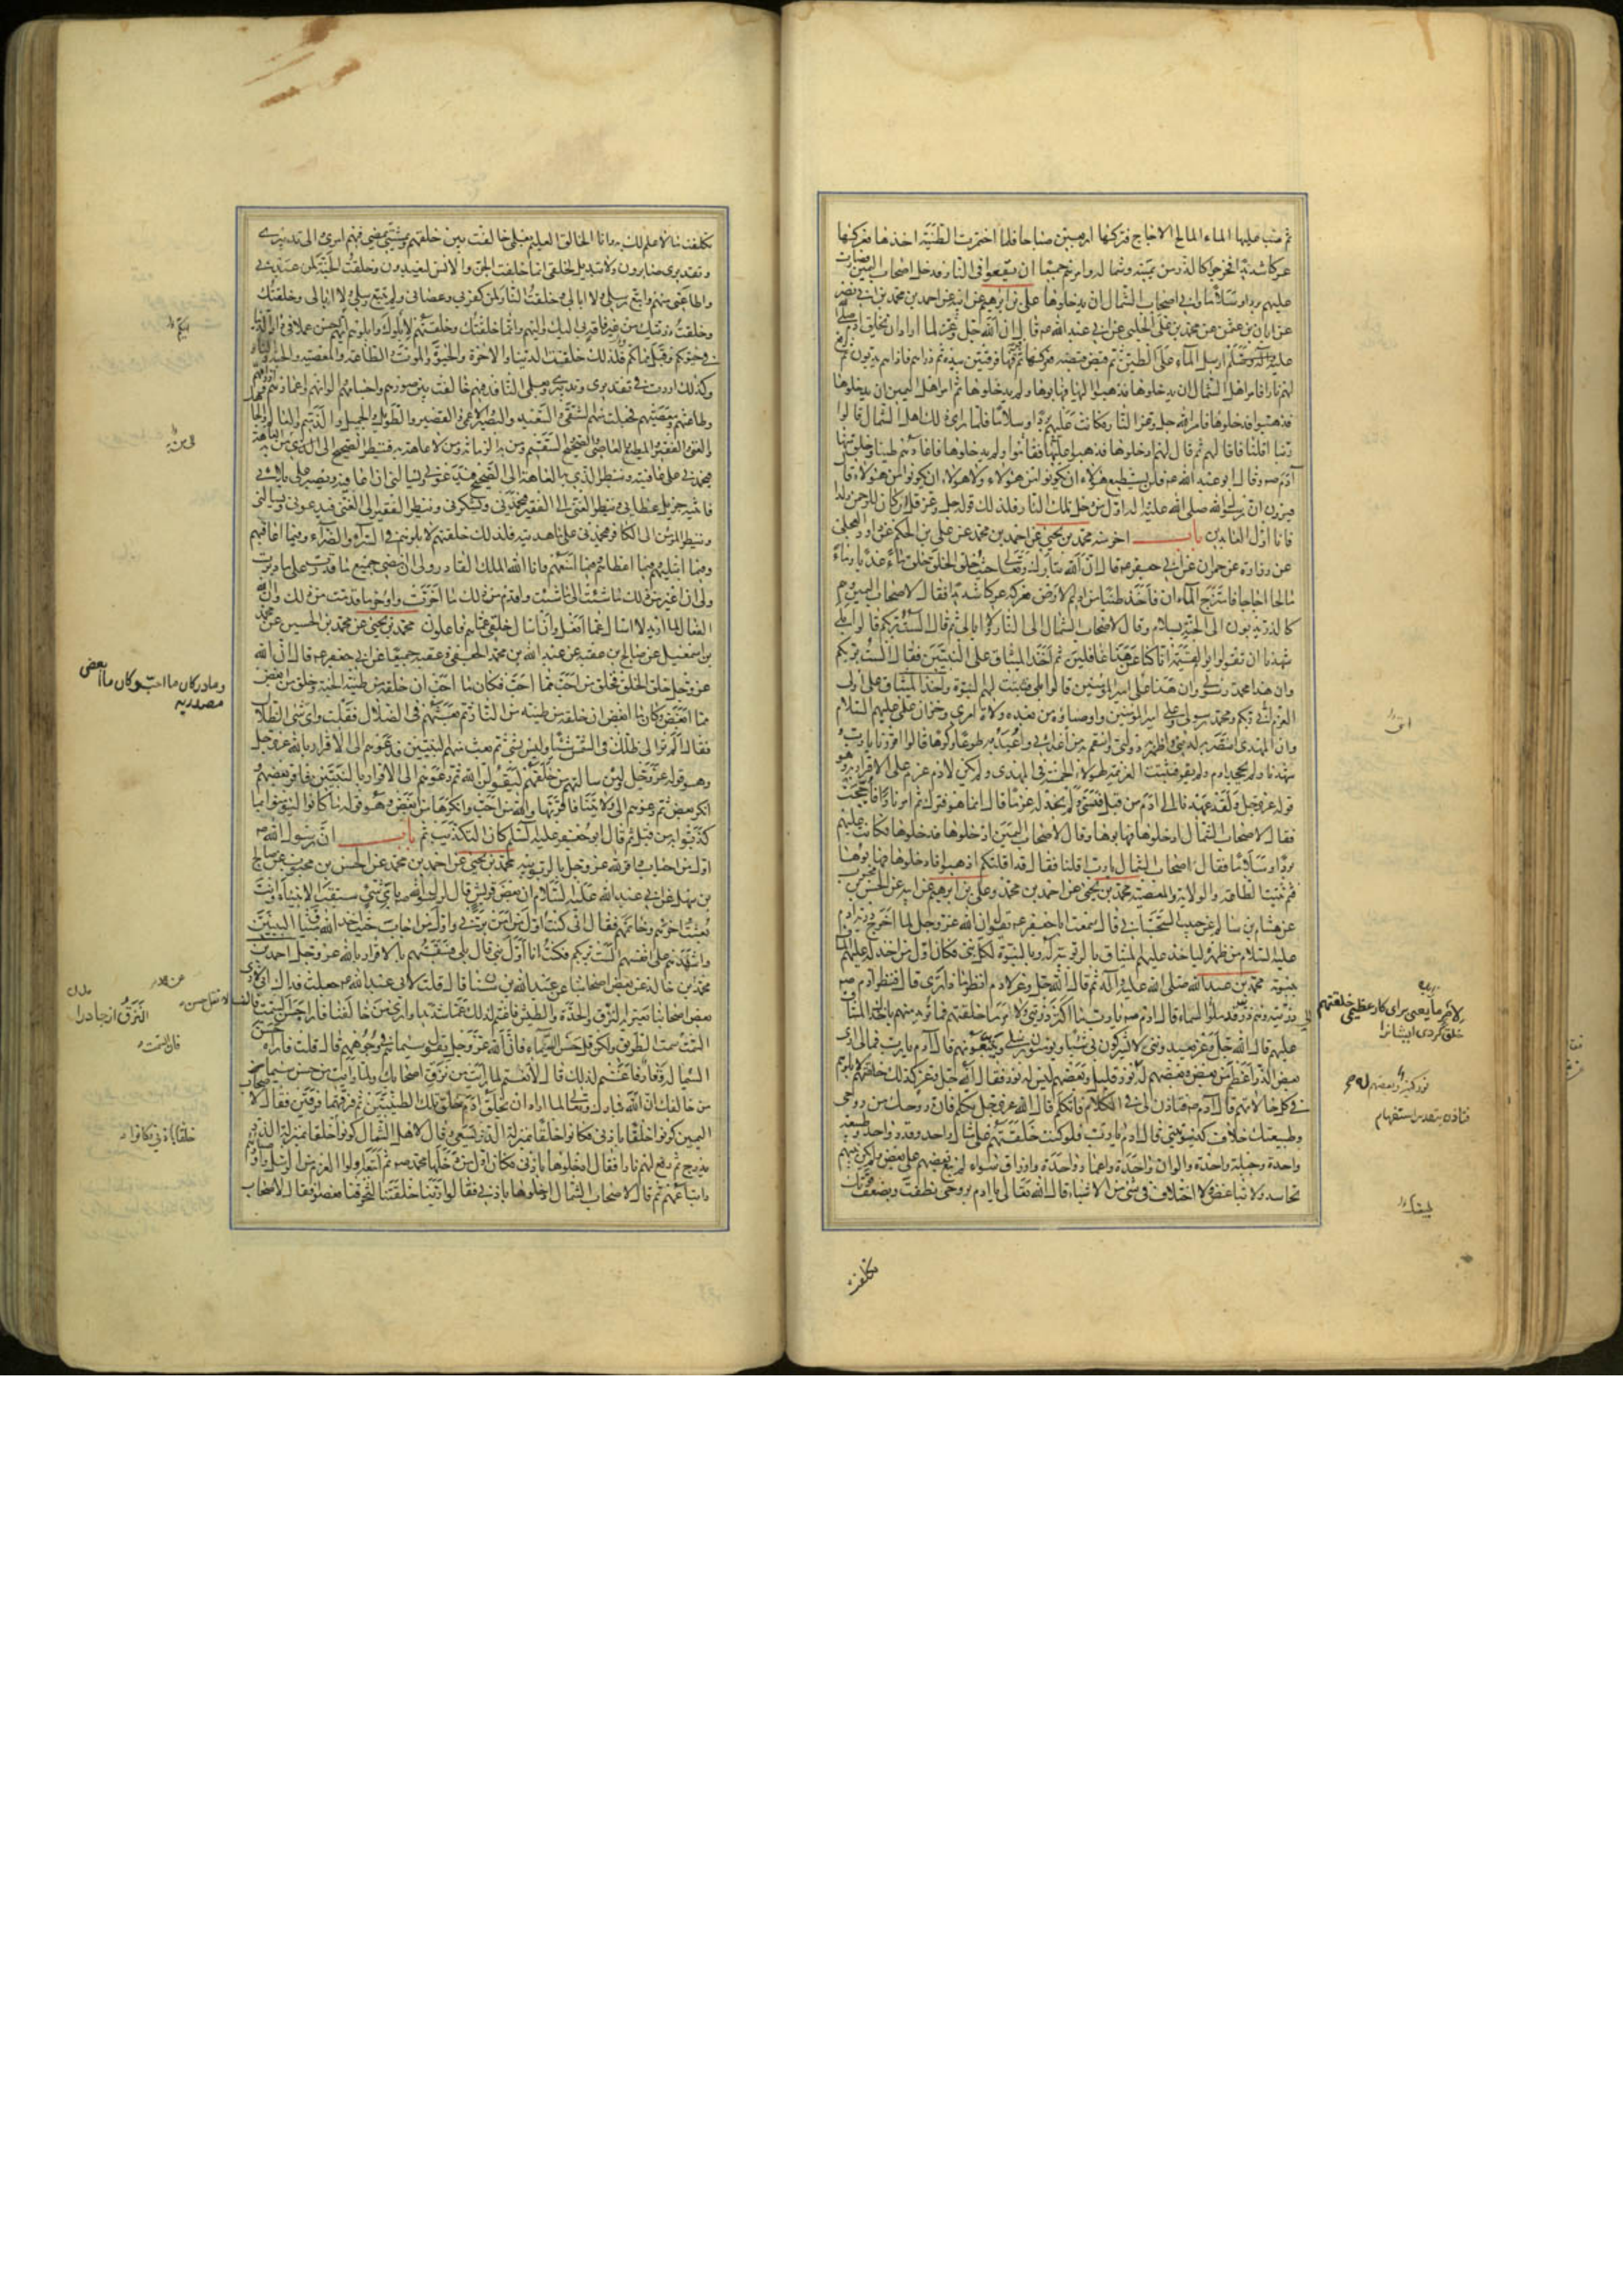 ثم صب عليها الماء المالح الاجاج فتركها اربعين صباحا فلما اختمرت الطينة اخذها فعركها
عركا شديدا فخرجوا كالذر من يمينه وشماله وامرهم جميعا ان يقعوا في النار فدخل اصحاب اليمين فصارت
عليهم بردا وسلاما وابى اصحاب الشمال ان يدخلوها علي بن ابرهيم عن ابيه عن احمد بن محمد بن ابي نصر
عن ابان بن عثمن عن محمد بن علي الحلبي عن ابي عبد الله ع قال ان الله جل وعز لما اراد ان يخلق ادم
عليه ارسل الماء على الطين ثم قبض قبضة فعركها ثم فرقها فرقتين بيده ثم ذراهم فاذا هم يدبون ثم رفع
لهم نارا فامر اهل الشمال ان يدخلوها فذهبوا اليها فهابوها ولم يدخلوها ثم امر اهل اليمين ان يدخلوها
فذهبوا فدخلوها فامر الله جل وعز النار فكانت عليهم بردا وسلاما فلما راى ذلك اهل الشمال قالوا
ربنا اقلنا فاقالهم ثم قال لهم ادخلوها فذهبوا فقاموا عليها ولم يدخلوها فاعادهم طينا وخلق منها
آدم ع وقال ابو عبد الله ع فلن يستطيع هؤلاء ان يكونوا من هؤلاء ولا هؤلاء ان يكونوا من هؤلاء قال
فيرون ان رسول الله صلى الله عليه اله اول من دخل تلك النار فلذلك قوله جل وعز قل ان كان للرحمن ولد
فانا اول العابدين باب اخر منه محمد بن يحيى عن احمد بن محمد عن علي بن الحكم عن داود العجلي
عن زرارة عن حمران عن ابي جعفر ع قال ان الله تبارك وتعالى حيث خلق الخلق خلق ماء عذبا وماء
مالحا اجاجا فامتزج الماءان فاخذ طينا من اديم الارض فعركه عركا شديدا فقال لاصحاب اليمين وهم
كالذر يدبون الى الجنة بسلام وقال لاصحاب الشمال الى النار ولا ابالي ثم قال الست بربكم قالوا بلى
شهدنا ان تقولوا يوم القيمة انا كنا عن هذا غافلين ثم اخذ الميثاق على النبيين فقال الست بربكم
وان هذا محمد رسولي وان هذا علي امير المؤمنين قالوا بلى فثبتت لهم النبوة واخذ الميثاق على اولي
العزم انني ربكم ومحمد رسولي وعلي امير المؤمنين واوصياؤه من بعده ولاة امري وخزان علمي عليهم السلام
وان المهدي انتصر به لديني واظهر به دولتي وانتقم به من اعدائي واعبد به طوعا وكرها قالوا اقررنا يا رب
شهدنا ولم يجحد ادم ولم يقر فثبتت العزيمة لهؤلاء الخمسة في المهدي ولم يكن لادم عزم على الاقرار به وهو
قوله عز وجل ولقد عهدنا الى ادم من قبل فنسي ولم نجد له عزما قال انما هو فترك ثم امر نارا فاججت
فقال لاصحاب الشمال ادخلوها فهابوها وقال لاصحاب اليمين ادخلوها فدخلوها فكانت عليهم
بردا وسلاما فقال اصحاب الشمال يا رب اقلنا فقال قد اقلتكم اذهبوا فادخلوها فهابوها
فثم ثبتت الطاعة والولاية والمعصية محمد بن يحيى عن احمد بن محمد وعلي بن ابرهيم عن ابيه عن الحسن بن محبوب
عن هشام بن سالم عن حبيب السجستاني قال سمعت ابا جعفر ع يقول ان الله عز وجل لما اخرج ذرية ادم
عليه السلام من ظهره لياخذ عليهم الميثاق بالربوبية له وبالنبوة لكل نبي فكان اول من اخذ له عليهم الميثاق
بنبوته محمد بن عبد الله صلى الله عليه وآله ثم قال الله جل وعز لادم انظر ماذا ترى قال فنظر ادم ع
ذريته وهم ذر قد ملؤا السماء قال ادم ع يا رب ما اكثر ذريتي ولامر ما خلقتهم فما تريد منهم باخذك الميثاق
عليهم قال الله جل وعز يعبدونني لا يشركون بي شيئا ويؤمنون برسلي ويتبعونهم قال آدم يا رب فما لي ارى
بعض الذر اعظم من بعض وبعضهم له نور قليل وبعضهم ليس له نور فقال الله جل وعز كذلك خلقتهم لابلوهم
في كل حالاتهم قال آدم ع فتاذن لي في الكلام فاتكلم قال الله عز وجل تكلم فان روحك من روحي
وطبيعتك خلاف كينونتي قال ادم يا رب فلو كنت خلقتهم على مثال واحد وقدر واحد وطبيعة
واحدة وجبلة واحدة والوان واحدة واعمار واحدة وارزاق سواء لم يبغ بعضهم على بعض ولم يكن بينهم
تحاسد ولا تباغض ولا اختلاف في شئ من الاشياء قال الله تعالى يا ادم بروحي نطقت وبضعف قوتك
تكلفت
لامر ما يعني براى كار عظيمى خلقتهم
خلق كردى ايشانرا
فتاذن بتقدير استفهام
تكلفت ما لا علم لك به وانا الخالق العليم بعلمي خالفت بين خلقهم وبمشيتي يمضي فيهم امري والى تدبيري
وتقديري صائرون ولا تبديل لخلقي انما خلقت الجن والانس ليعبدون وخلقت الجنة لمن عبدني
واطاعني منهم واتبع رسلي ولا ابالي وخلقت النار لمن كفر بي وعصاني ولم يتبع رسلي ولا ابالي وخلقتك
وخلقت ذريتك من غير فاقة بي اليك واليهم وانما خلقتك وخلقتهم لابلوك وابلوهم ايهم احسن عملا في دار الدنيا
في حيوتكم وقبل مماتكم فلذلك خلقت الدنيا والاخرة والحيوة والموت والطاعة والمعصية والجنة والنار
وكذلك اردت في تقديري وتدبيري وبعلمي النافذ فيهم خالفت بين صورهم واجسامهم الوانهم واعمارهم وارزاقهم
وطاعتهم ومعصيتهم فجعلت منهم الشقي والسعيد والبصير والاعمى والقصير والطويل والجميل والدميم والعالم والجاهل
والغني والفقير والمطيع والعاصي والصحيح والسقيم ومن به الزمانة ومن لا عاهة به فينظر الصحيح الى الذي به العاهة
فيحمدني على عافيته وينظر الذي به العاهة الى الصحيح فيدعوني ويسالني ان اعافيه ويصبر على بلائي
فاثيبه جزيل عطائي وينظر الغني الى الفقير فيحمدني ويشكرني وينظر الفقير الى الغني فيدعوني ويسالني
وينظر المؤمن الى الكافر فيحمدني على ما هديته فلذلك خلقتهم لابلوهم في السراء والضراء وفيما اعافيهم
وفيما ابتليهم وفيما اعطيهم وفيما امنعهم وانا الله الملك القادر ولي ان امضي جميع ما قدرت على ما دبرت
ولي ان اغير من ذلك ما شئت الى ما شئت واقدم من ذلك ما اخرت واوخر ما قدمت من ذلك وانا الله
الفعال لما اريد لا اسال عما افعل وانا اسال خلقي عما هم فاعلون محمد بن يحيى عن محمد بن الحسين عن محمد
بن اسمعيل عن صالح بن عقبة عن عبد الله بن محمد الجعفي وعقبة جميعا عن ابي جعفر ع قال ان الله
عز وجل خلق الخلق فخلق من احب مما احب فكان ما احب ان خلقه من طينة الجنة وخلق من ابغض
مما ابغض وكان ما ابغض ان خلقه من طينة من النار ثم بعثهم في الضلال فقلت واي شئ الظلال
فقال الم تر الى ظلك في الشمس شيئا وليس بشئ ثم بعث منهم النبيين فدعوهم الى الاقرار بالله عز وجل
وهو قوله عز وجل ولئن سالتهم من خلقهم ليقولن الله ثم دعوهم الى الاقرار بالنبيين فاقر بعضهم
انكر بعض ثم دعوهم الى ولايتنا فاقر بها والله من احب وانكرها من ابغض وهو قوله ما كانوا ليؤمنوا بما
كذبوا به من قبل ثم قال ابو جعفر عليه السلم كان التكذيب ثم باب ان رسول الله ص
اول من اجاب واقر لله عز وجل بالربوبية محمد بن يحيى عن احمد بن محمد عن الحسن بن محبوب عن صالح
بن سهل عن ابي عبد الله عليه السلام ان بعض قريش قال لرسول الله ص باي شئ سبقت الانبياء وانت
بعثت اخرهم وخاتمهم فقال اني كنت اول من امن بربي واول من اجاب حيث اخذ الله ميثاق النبيين
واشهدهم على انفسهم الست بربكم فكنت انا اول نبي قال بلى فسبقتهم بالاقرار بالله عز وجل احمد بن
محمد بن خالد عن بعض اصحابنا عن عبد الله بن سنان قال قلت لابي عبد الله ع جعلت فداك اني لارى
بعض اصحابنا يعتريه النزق والحدة والطيش فاغتم لذلك غما شديدا وارى من خالفنا فاراه حسن السمت قال لا تقل حسن
السمت فان السمت سمت الطريق ولكن قل حسن السيماء فان الله عز وجل يقول سيماهم في وجوههم قال قلت فاراه حسن
السيماء له وقار فاغتم لذلك قال لا تغتم لما رايت من نزق اصحابك ولما رايت من حسن سيماء
من خالفك ان الله تبارك وتعالى لما اراد ان يخلق آدم خلق تلك الطينتين ثم فرقهما فرقتين فقال لاصحاب
اليمين كونوا خلقا باذني فكانوا خلقا بمنزلة الذر يسعى وقال لاهل الشمال كونوا خلقا بمنزلة الذر
يدرج ثم رفع لهم نارا فقال ادخلوها باذني فكان اول من دخلها محمد ص ثم اتبعه اولوا العزم من الرسل واوصياؤهم
واتباعهم ثم قال لاصحاب الشمال ادخلوها باذني فقالوا ربنا خلقتنا لتحرقنا فعصوا فقال لاصحاب
وما در كان ما احب وكان ما ابغض
مصدريه
النزق از جا در
فان السمت
خلقا باذني فكانوا